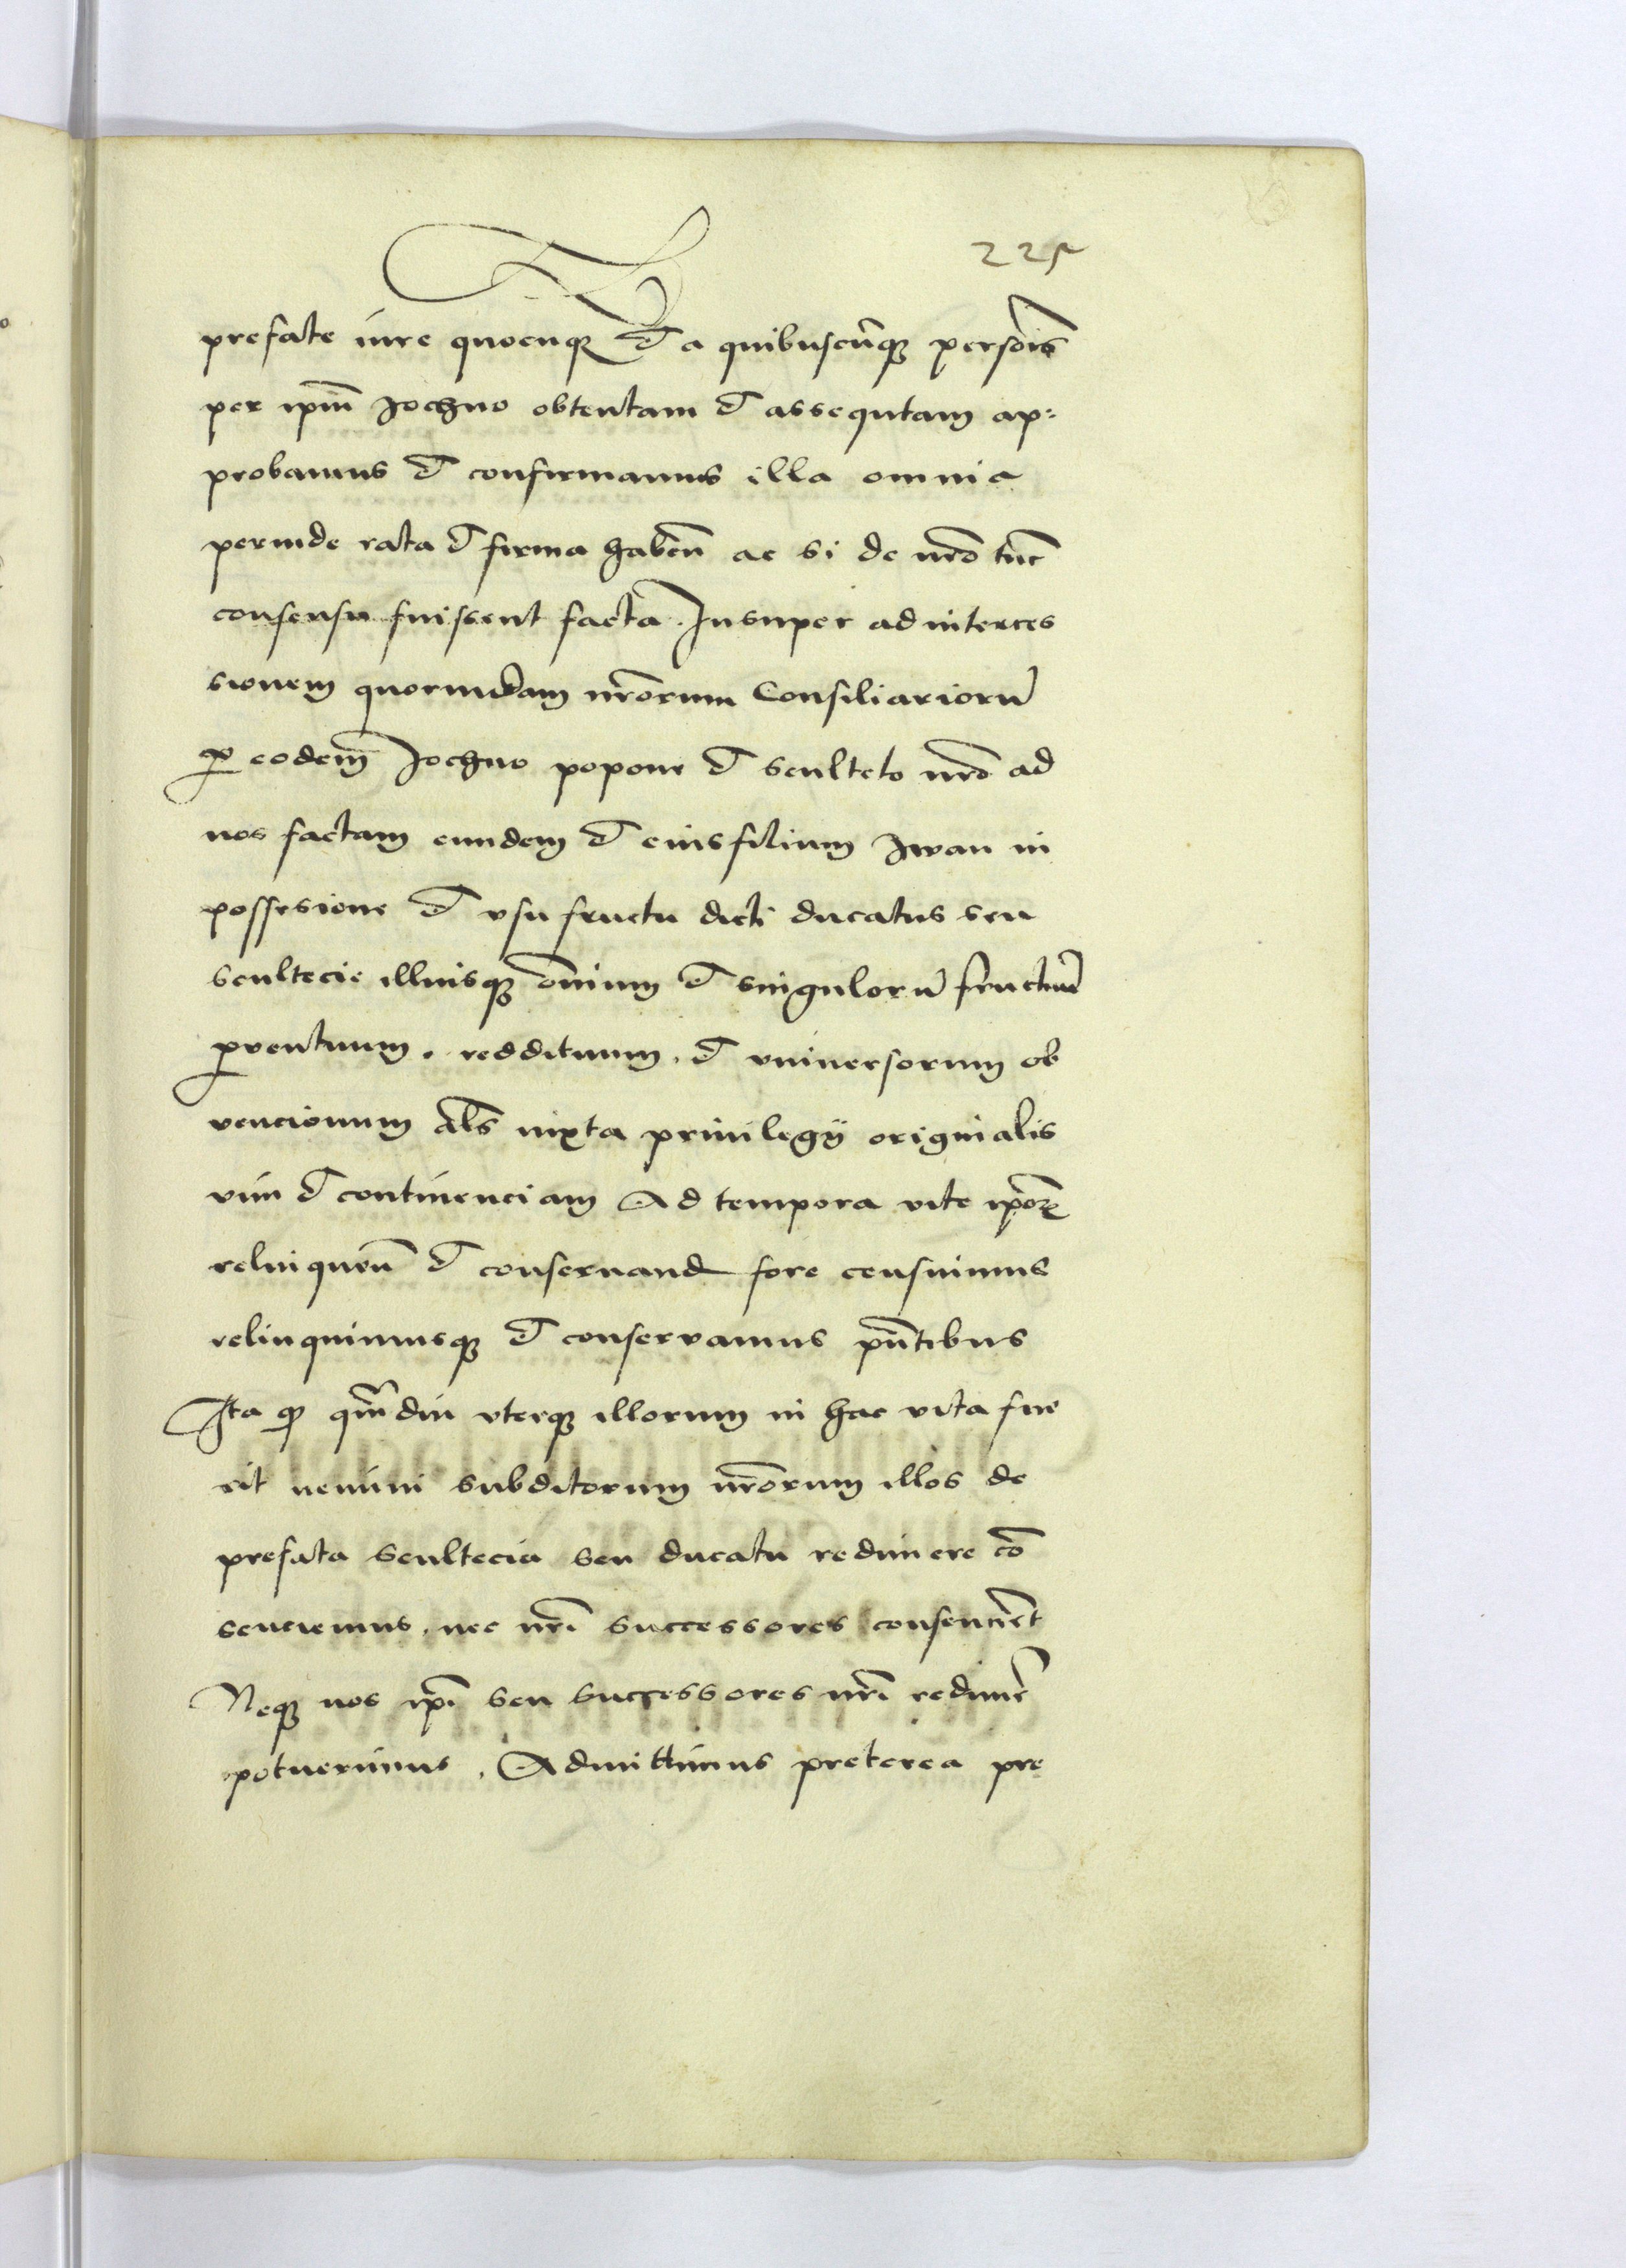 225
prefate iure quocunq; et a quibuscūq; persōis
per ipm̄ Jochno obtentam et assequtam ap=
probamus et confirmamus illa omnia
perinde rata et firma habeñ ac si de nr̄o tūc
consensu fuissent facta. Insuper ad interces
sionem quorundam nr̄orum Consiliariorū
ꝓ eodem̄ Jochno popone et sculteto nr̄o ad
nos factam eundem et eius filium Iwan in
possesione et vsufructu dicti ducatus seu
scultecie illiusq; om̄ium et singulorū fructuū
ꝓventuum. reddituum. et vniuersorum ob
vencionum als̄ iuxta priuilegij originalis
vim et continenciam Ad tempora vite ip̄oꝝ
relinqueñ et conseruand fore censuimus
relinquimusq; et conservamus pn̄tibus
Ita ꝙ qm̄diu vterq; illorum in hac vita fue
rit nemini subditorum nr̄orum illos de
prefata scultecia seu ducatu redimere cō
senciemus. nec nr̄i successores consencient̄
Neq; nos ip̄i seu successores nr̄i redimer̄
potuerimus. Admittimus preterea pre